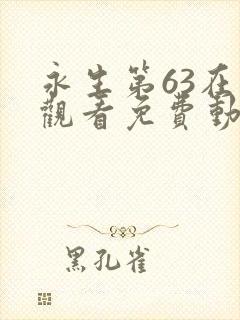 永生第63在
觀看免費動
黑孔雀